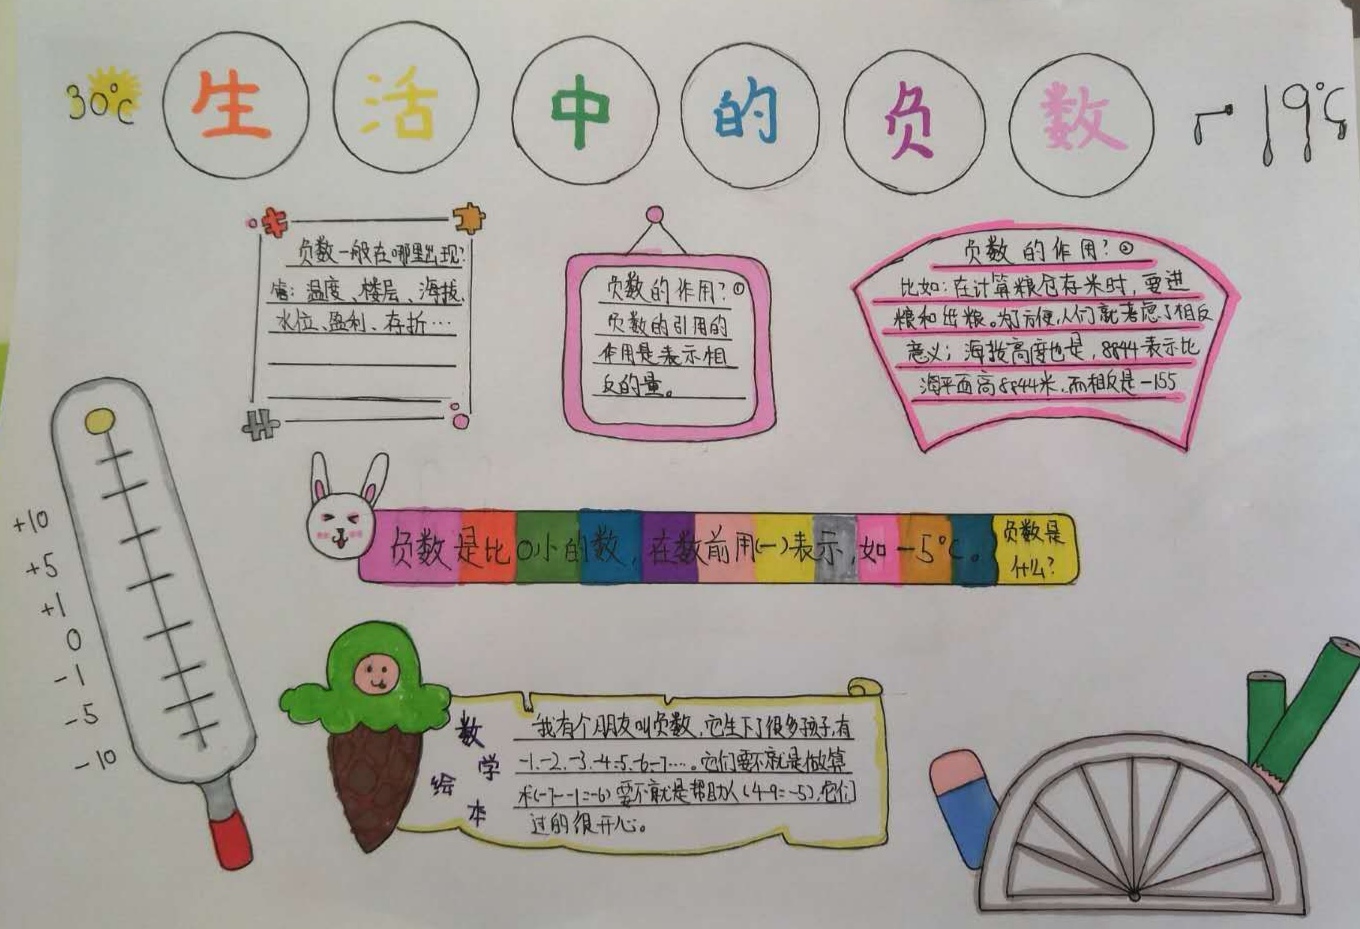 30℃ 生活中的负数 -19℃
负数一般在哪里出现?
答:温度、楼层、海拔、
水位、盈利、存折…
负数的作用?①
负数的引用的
作用是表示相
反的量。
负数的作用?②
比如:在计算粮仓存米时,要进
粮和出粮。为了方便,人们就考虑了相反
意义;海拔高度也是,8844表示比
海平面高8844米,而相反是-155
+10
+5
+1
0
-1
-5
-10
负数是比0小的数,在数前用(-)表示,如-5℃。
负数是
什么?
数学
绘本
我有个朋友叫负数,它生下了很多孩子,有
-1、-2、-3、-4、-5、-6、-7……。它们要不就是做算
术(-7--1=-6)要不就是帮助人(4-9=-5),它们
过的很开心。